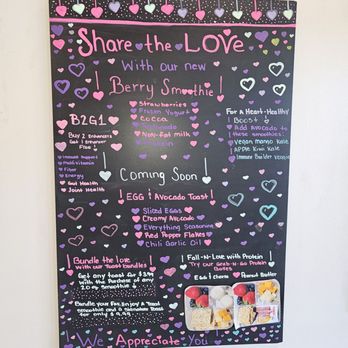 Share the LOVE
With our new
Berry Smoothie
Strawberries
Frozen Yogurt
Cocoa
Non-fat milk
B2G1
Buy 2 Enhancers
Get 1 Enhancer
Free
Immune Support
Multivitamin
Fiber
Energy
Gut Health
Joint Health
For a Heart-Healthy
Boost
Add Avocado to
these smoothies!
Vegan Mango Kale
Apple Kiwi Kale
Immune Builder Veggie
Coming Soon
EGG & Avocado Toast!
Sliced Eggs
Creamy Avocado
Everything Seasoning
Red Pepper Flakes
Chili Garlic Oil
Bundle the love
With our Toast bundles!
Get any toast for $3.99
with the Purchase of any
20 oz Smoothie
Bundle your Fav, Enjoy a Toast
Smoothie and a Signature Toast
for only $
Fall-N-Love with Protein
Try our Grab-N-Go Protein
Boxes
Egg & Cheese
Peanut Butter
We Appreciate You